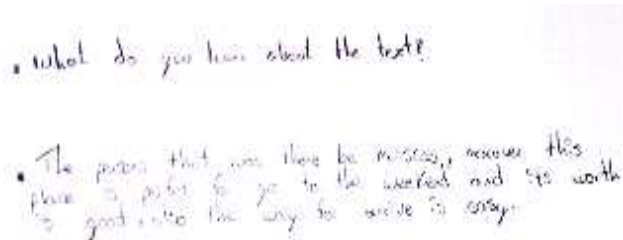 • What do you know about the text?
• The person that was there be moscow, moscow this
place is perfect to go to the weekend and its worth
is good, also the way to arrive is easy.